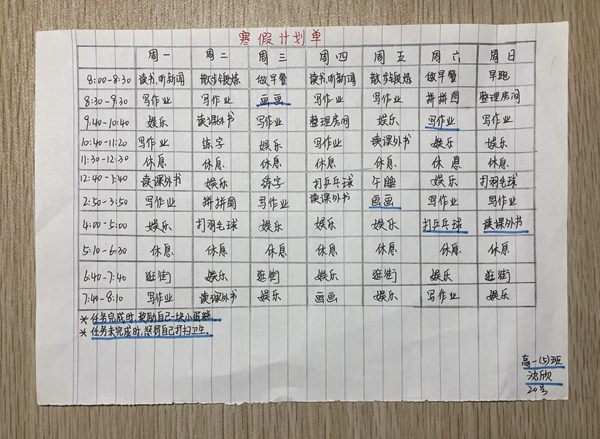 寒假计划单
周一 周二 周三 周四 周五 周六 周日
8:00-8:30 读书,听新闻 散步锻炼 做早餐 读书,听新闻 散步锻炼 做早餐 早跑
8:30-9:30 写作业 写作业 画画 写作业 写作业 拼拼图 整理房间
9:40-10:40 娱乐 读课外书 写作业 整理房间 娱乐 写作业 写作业
10:40-11:20 写作业 练字 娱乐 写作业 读课外书 娱乐 娱乐
11:30-12:30 休息 休息 休息 休息 休息 休息 休息
12:40-1:40 读课外书 娱乐 练字 打乒乓球 午睡 娱乐 打羽毛球
2:50-3:50 写作业 拼拼图 写作业 读课外书 画画 写作业 写作业
4:00-5:00 娱乐 打羽毛球 娱乐 娱乐 娱乐 打乒乓球 读课外书
5:10-6:30 休息 休息 休息 休息 休息 休息 休息
6:40-7:40 逛街 娱乐 逛街 娱乐 逛街 娱乐 逛街
7:40-8:10 写作业 读课外书 娱乐 画画 娱乐 写作业 娱乐
* 任务完成时,奖励自己一块小蛋糕.
* 任务未完成时,惩罚自己打扫卫生。
高一(5)班
欣
20号